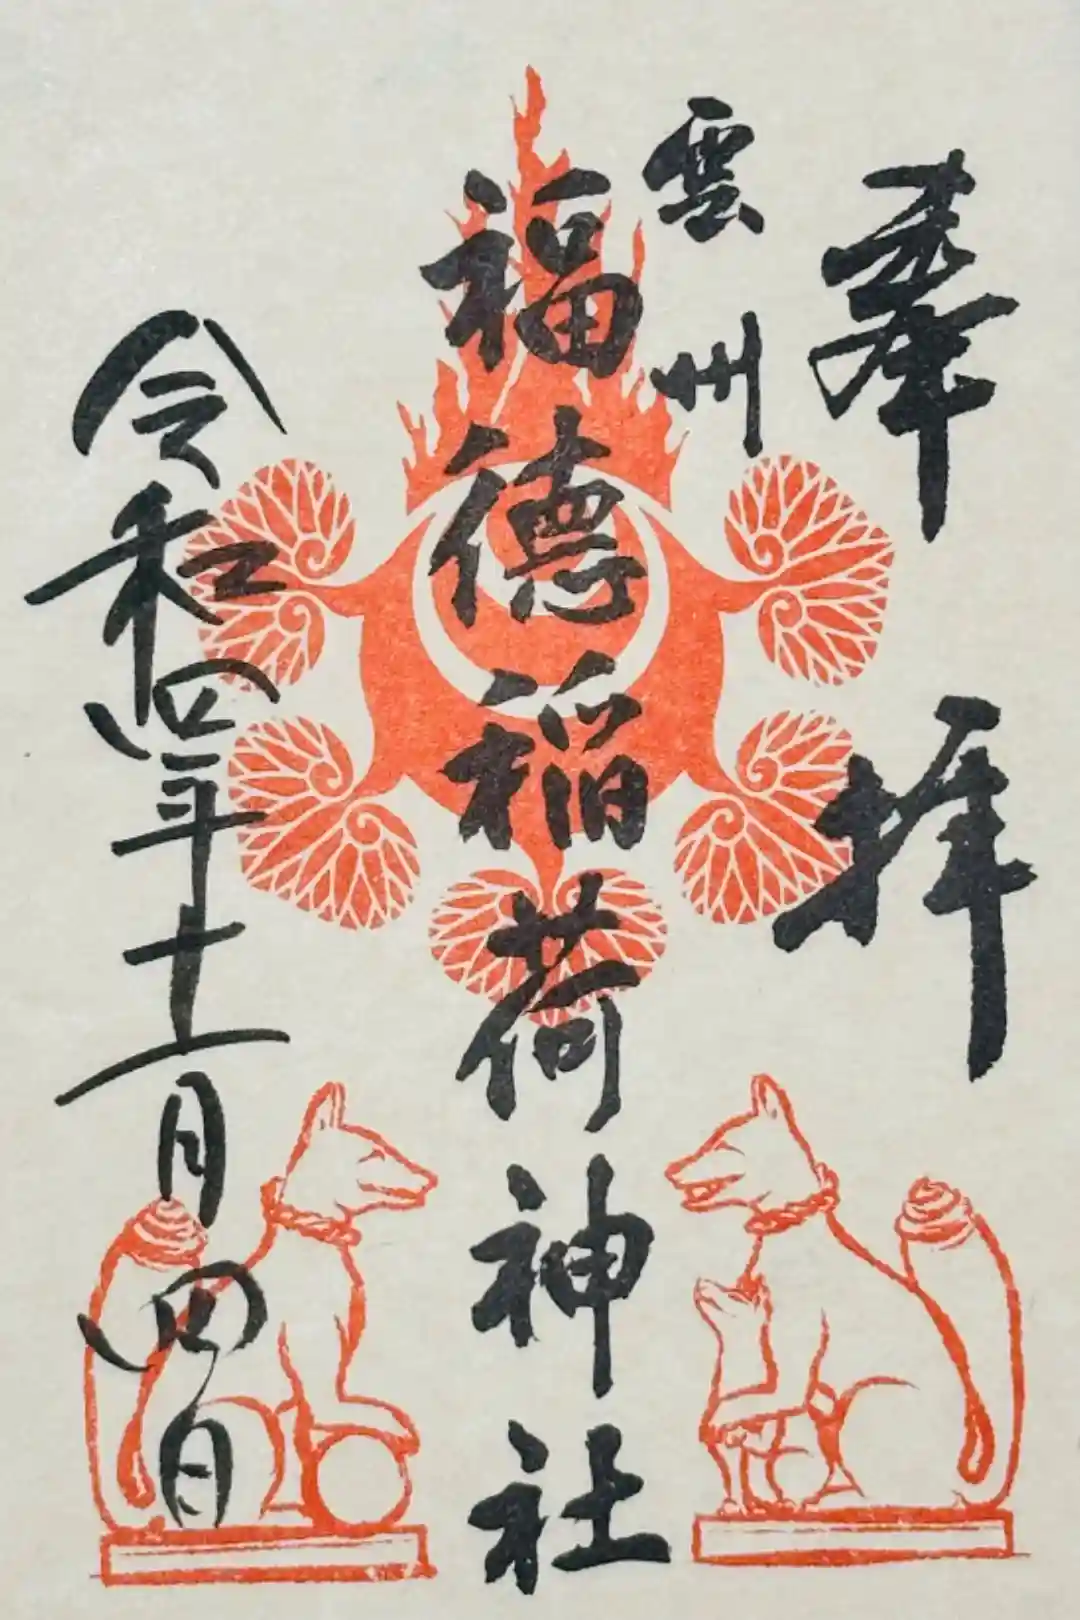 奉拝
雲州
福德稲荷神社
令和四年十一月四日